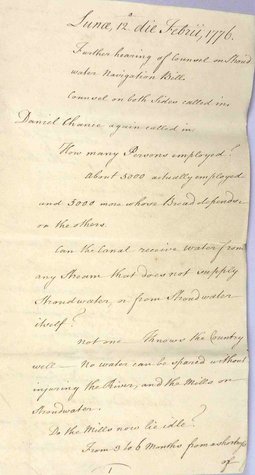 Lunæ, 12° die Febrii, 1776.
Further hearing of Counsel on Stroud
water Navigation Bill.
Counsel on both Sides called in.
Daniel Chance again called in
How many Persons employed?
About 5000 actually employed
and 5000 more whose Bread depends
on the others.
Can the Canal receive water from
any Stream that does not supply
Stroudwater, or from Stroudwater
itself?
not one — knows the Country
well — No water can be spared without
injuring the River, and the Mills on
Stroudwater.
Do the Mills now lie idle?
From 3 to 6 Months from a shortage
of